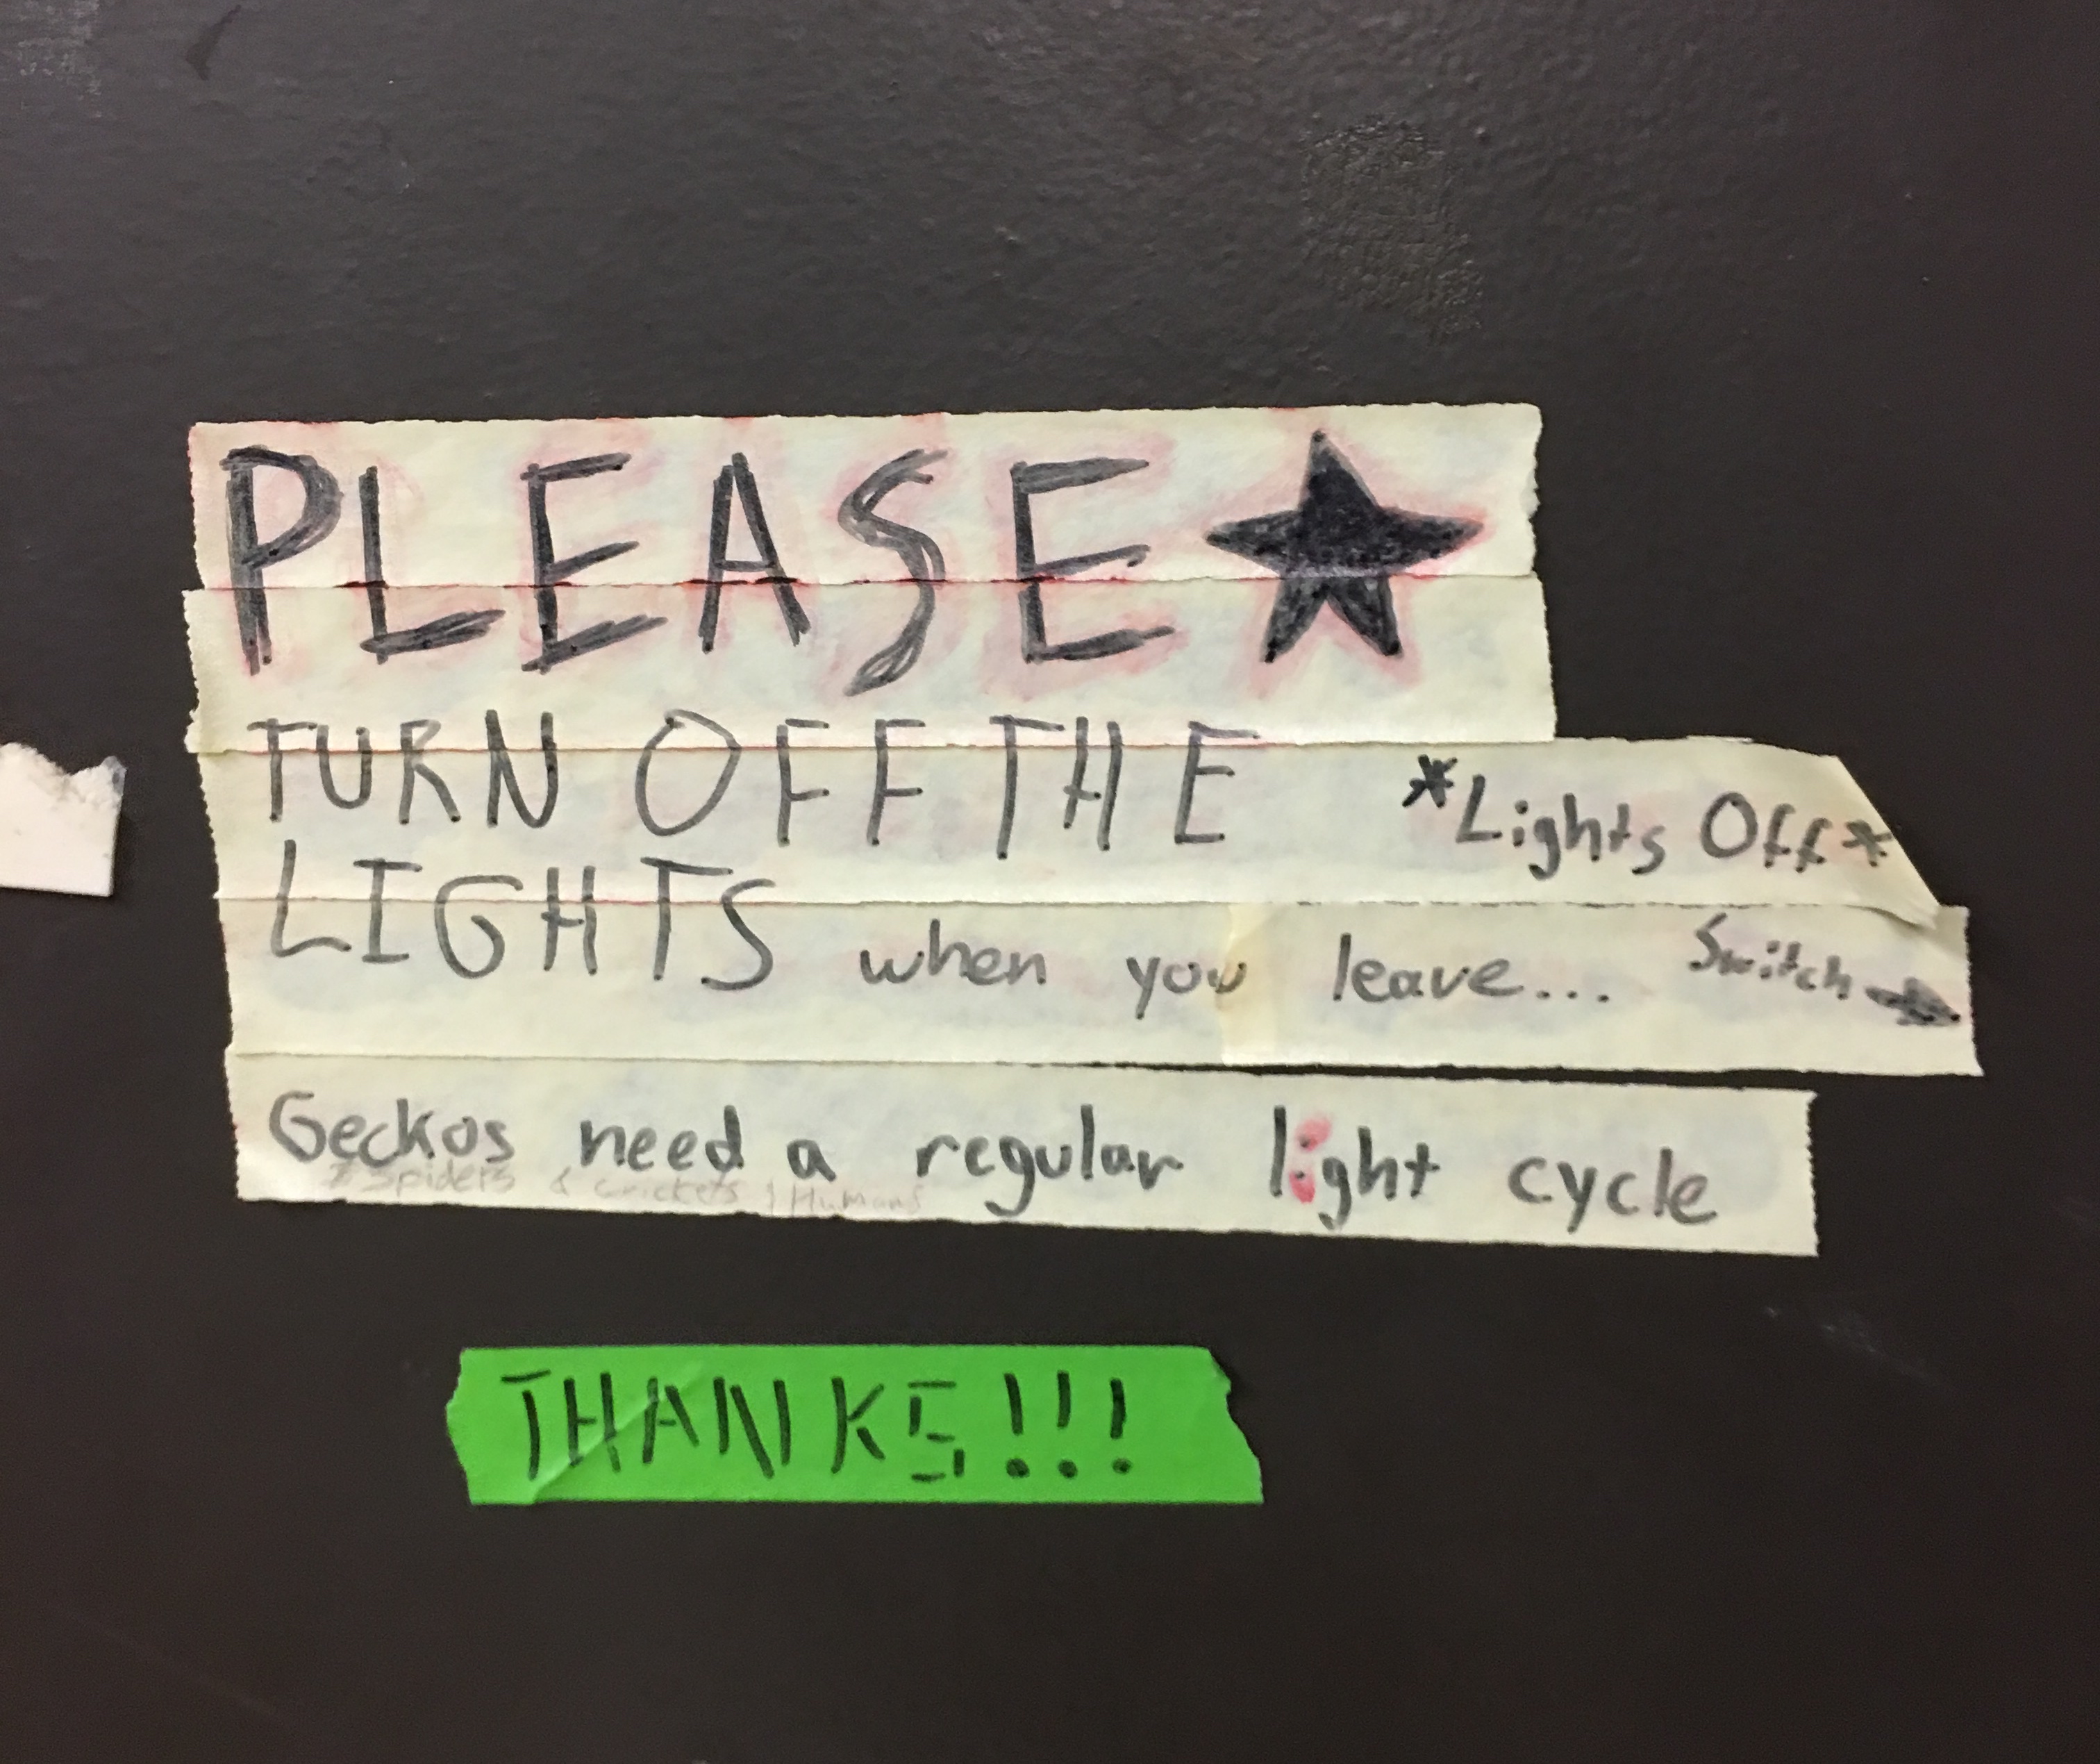 PLEASE
TURN OFF THE
*Lights Off*
LIGHTS when you leave... Switch
Geckos need a regular light cycle
& Spiders & Crickets & Humans
THANKS!!!